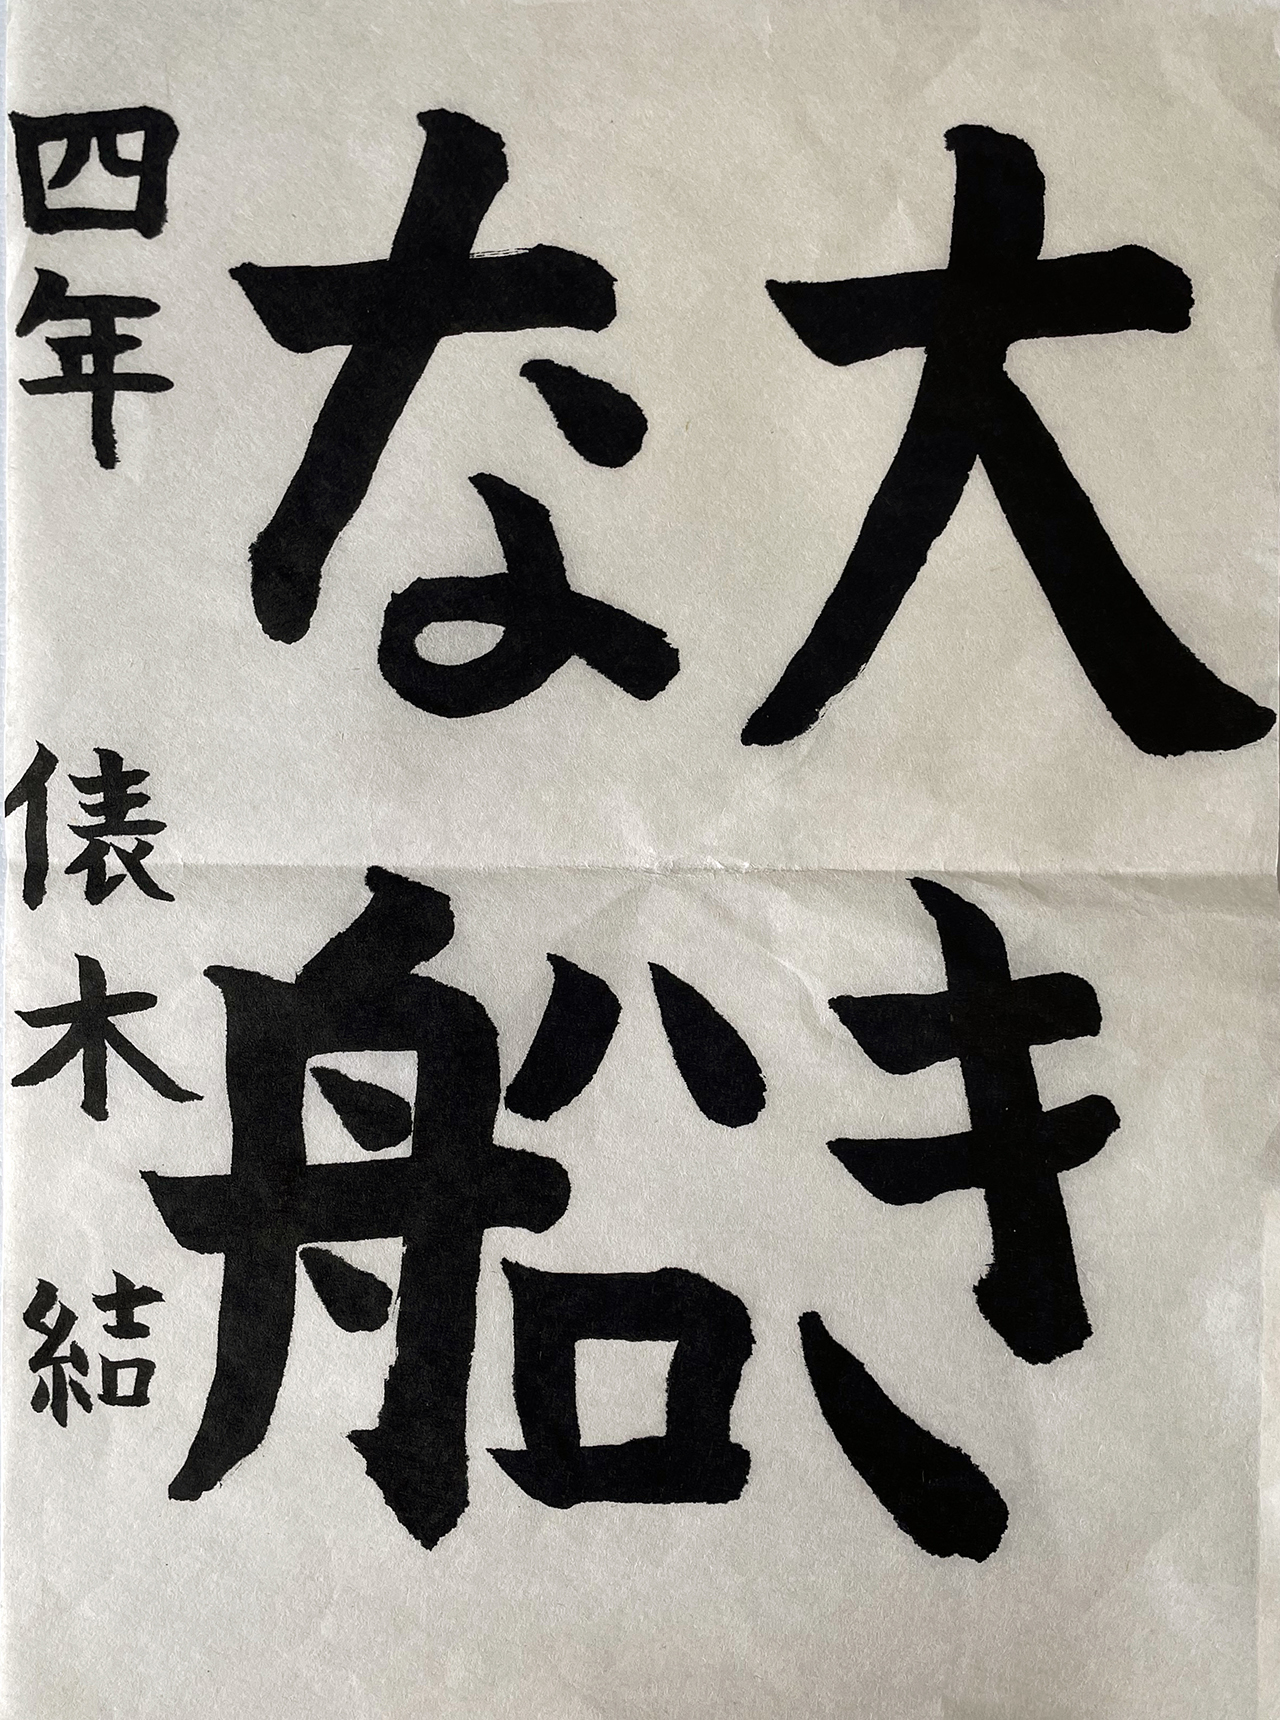 大き
な船
四年 俵木 結